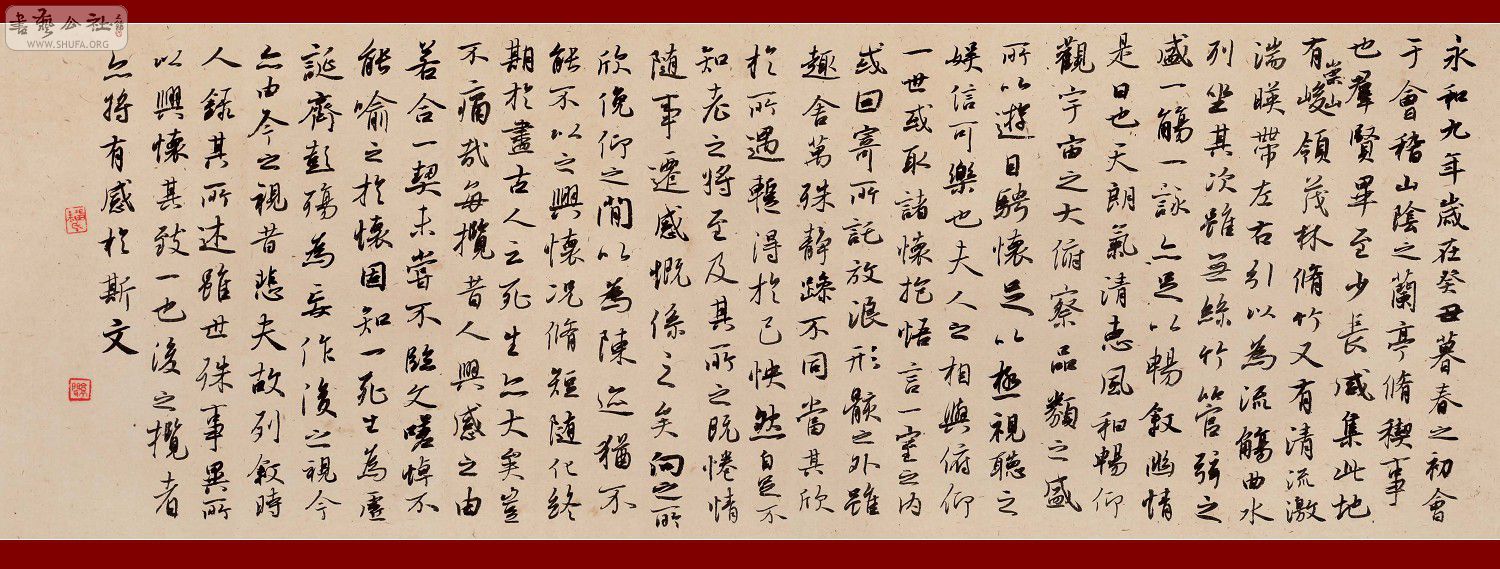 永和九年歲在癸丑暮春之初會
于會稽山陰之蘭亭脩稧事
也羣賢畢至少長咸集此地
有崇山峻領茂林脩竹又有清流激
湍暎帶左右引以為流觴曲水
列坐其次雖無絲竹管弦之
盛一觴一詠亦足以暢敘幽情
是日也天朗氣清惠風和暢仰
觀宇宙之大俯察品類之盛
所以遊目騁懷足以極視聽之
娛信可樂也夫人之相與俯仰
一世或取諸懷抱悟言一室之內
或因寄所託放浪形骸之外雖
趣舍萬殊靜躁不同當其欣
於所遇蹔得於己怏然自足不
知老之將至及其所之既惓情
隨事遷感慨係之矣向之所
欣俛仰之閒以為陳迹猶不
能不以之興懷況脩短隨化終
期於盡古人云死生亦大矣豈
不痛哉每攬昔人興感之由
若合一契未嘗不臨文嗟悼不
能喻之於懷固知一死生為虛
誕齊彭殤為妄作後之視今
亦由今之視昔悲夫故列敘時
人錄其所述雖世殊事異所
以興懷其致一也後之攬者
亦將有感於斯文
書藝公社
WWW.SHUFA.ORG